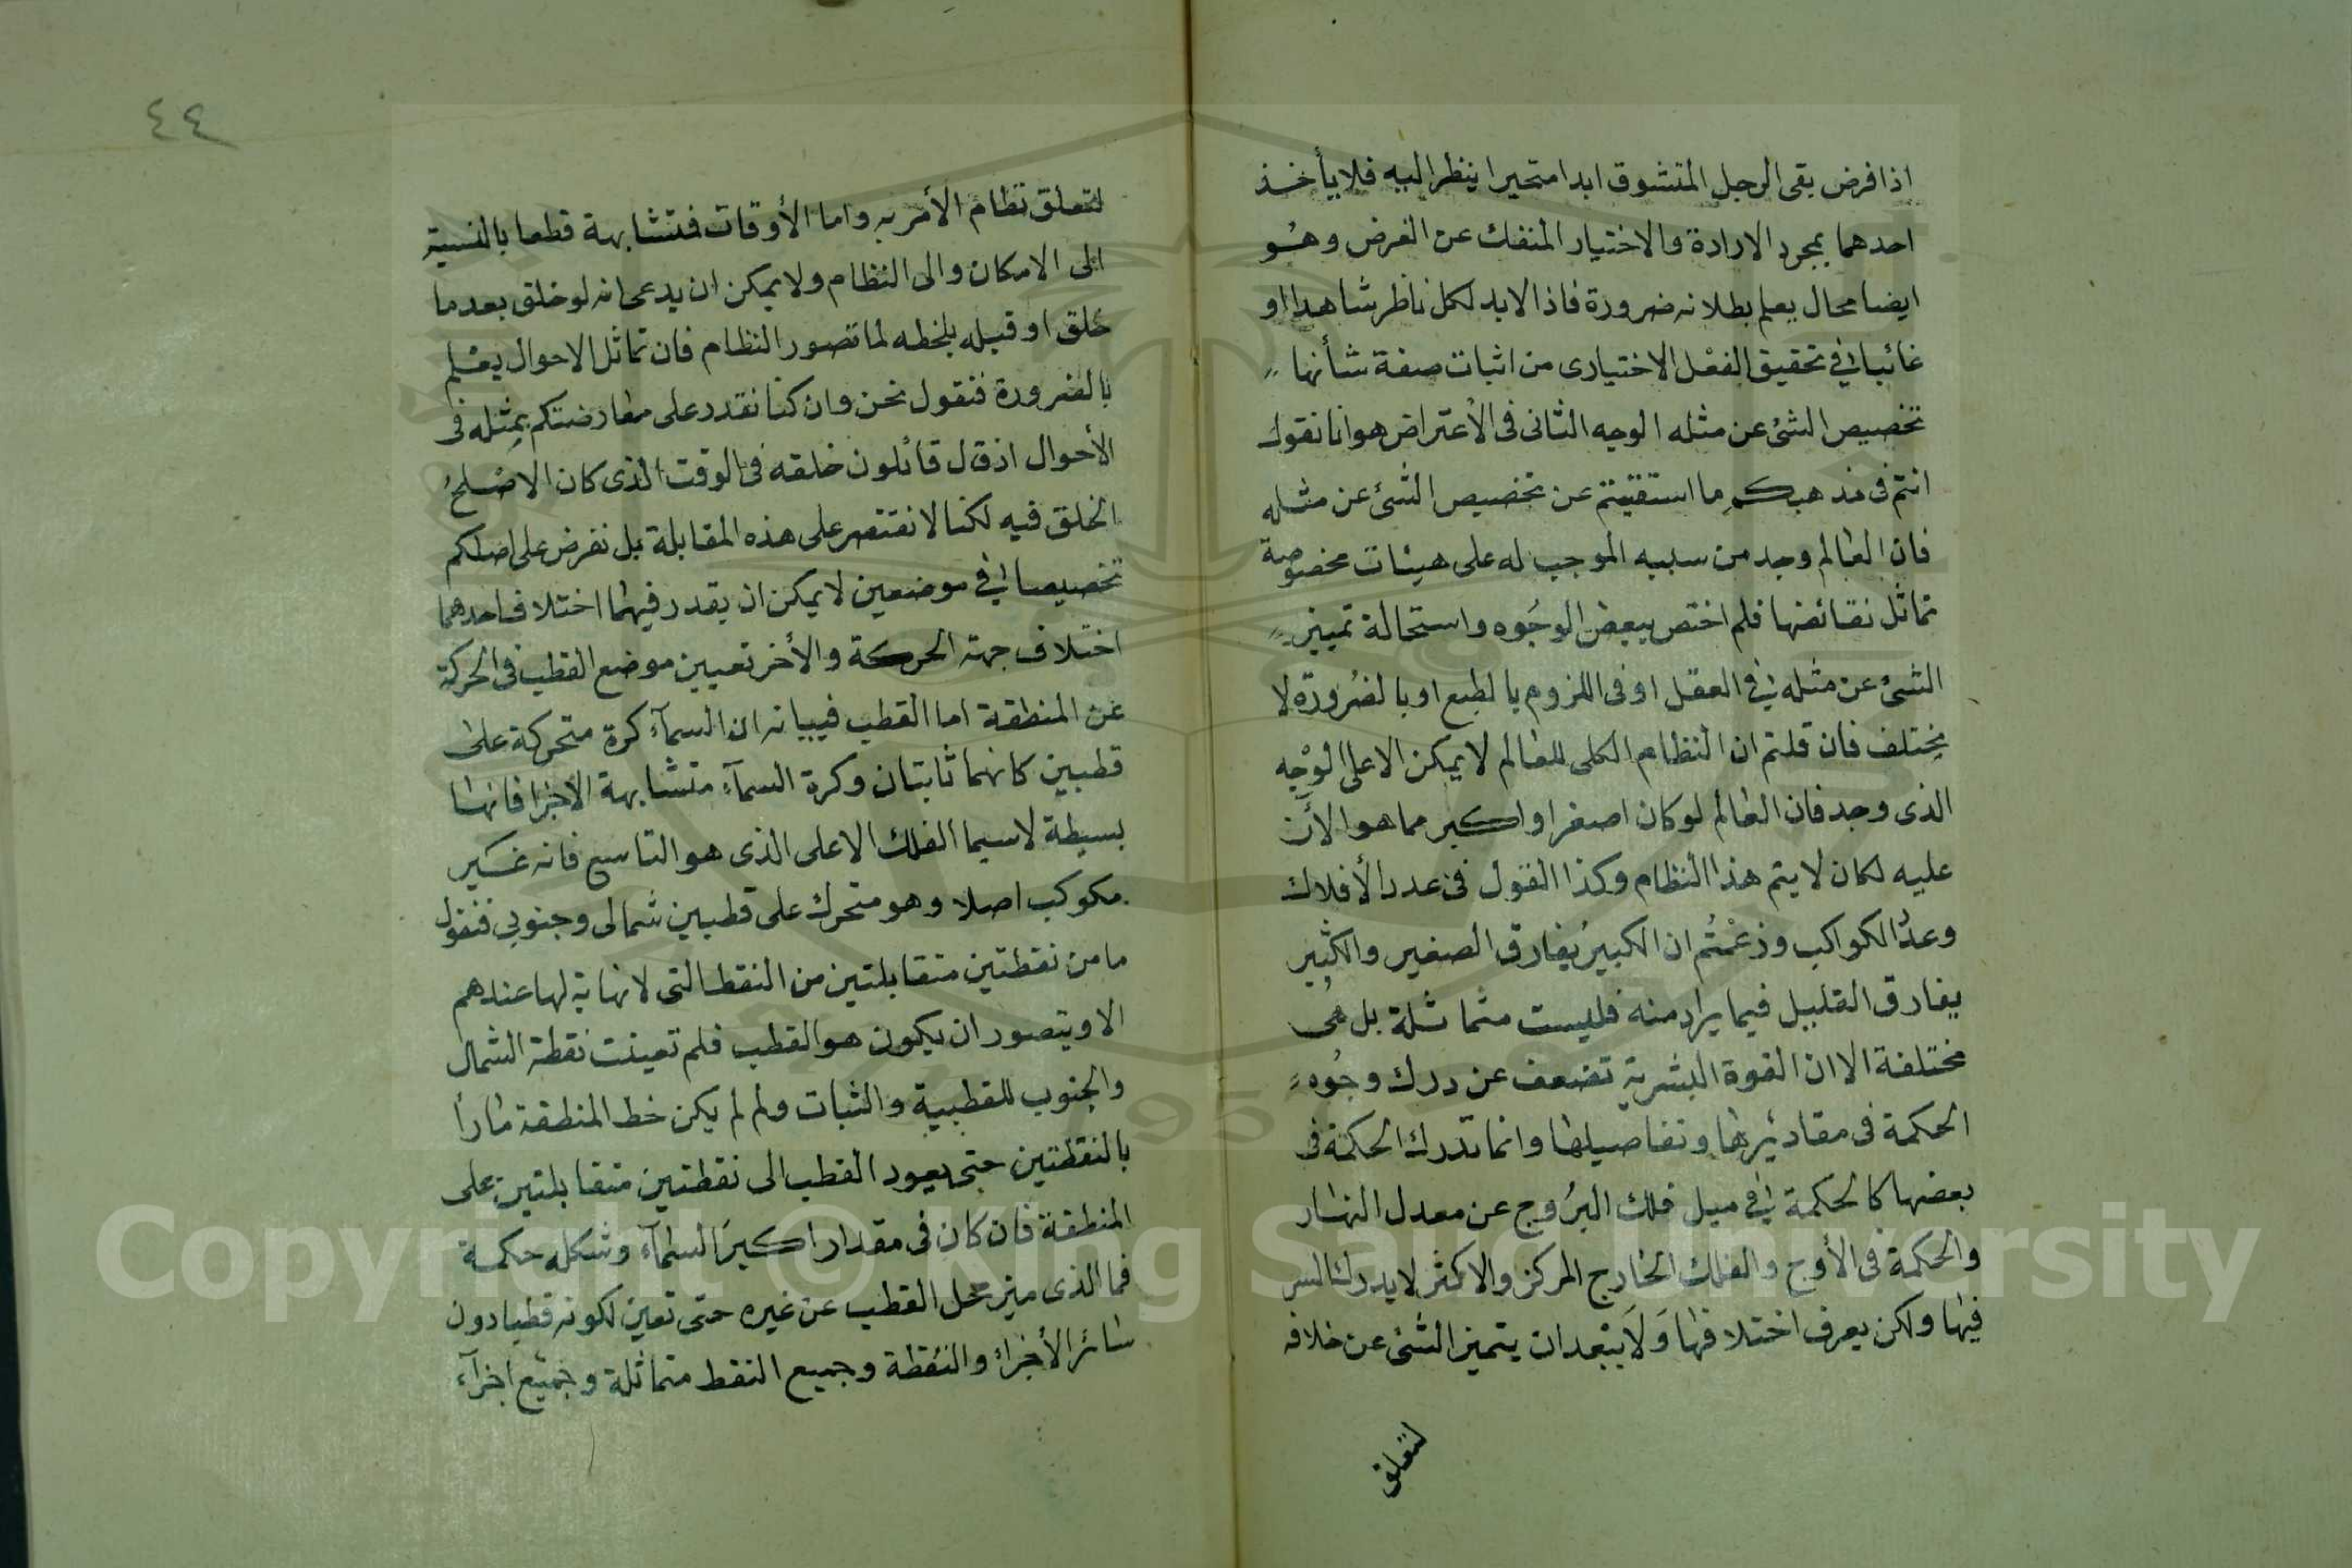 اذا فرض بقى الرجل المتشوق ابدا متحيرا ينظر اليه فلا يأخذ
احدهما بمجرد الارادة والاختيار المنفك عن الغرض وهو
ايضا محال يعلم بطلانه ضرورة فاذا لابد لكل ناظر شاهدا او
غائبا في تحقيق الفعل الاختيارى من اثبات صفة شأنها
تخصيص الشئ عن مثله الوجه الثانى فى الاعتراض هو انا نقول
انتم فى مذهبكم ما استغنيتم عن تخصيص الشئ عن مثله
فان العالم وجد من سببه الموجب له على هيئات مخصوصة
تماثل نقائضها فلم اختص ببعض الوجوه واستحالة تمييز
الشئ عن مثله في العقل او فى اللزوم بالطبع او بالضرورة لا
يختلف فان قلتم ان النظام الكلى للعالم لا يمكن الا على الوجه
الذى وجد فان العالم لو كان اصغر او اكبر مما هو الأن
عليه لكان لا يتم هذا النظام وكذا القول فى عدد الأفلاك
وعدد الكواكب وزعمتم ان الكبير يفارق الصغير والكثير
يفارق القليل فيما يراد منه فليست متماثلة بل هى
مختلفة الا ان القوة البشرية تضعف عن درك وجوه
الحكمة فى مقاديرها وتفاصيلها وانما تدرك الحكمة فى
بعضها كالحكمة في ميل فلك البروج عن معدل النهار
والحكمة فى الأوج والفلك الخارج المركز والاكثر لا يدرك السر
فيها ولكن يعرف اختلافها ولا يبعد ان يتميز الشئ عن خلافه
لتعلق
٤٤
لتعلق نظام الأمر به واما الأوقات فتشابهة قطعا بالنسبة
الى الامكان والى النظام ولا يمكن ان يدعى انه لو خلق بعد ما
خلق او قبله بلحظه لما تصور النظام فان تماثل الاحوال يعلم
بالضرورة فنقول نحن وان كنا نقدر على معارضتكم بمثله فى
الأحوال اذ قال قائلون خلقه فى الوقت الذى كان الاصلح
الخلق فيه لكنا لا نقتصر على هذه المقابلة بل نفرض على اصلكم
تخصيصا في موضعين لا يمكن ان يقدر فيهما اختلاف احدهما
اختلاف جهة الحركة والأخر تعيين موضع القطب فى الحركة
عن المنطقة اما القطب فبيانه ان السمآء كرة متحركة على
قطبين كانهما ثابتان وكرة السمآء متشابهة الأجزا فانها
بسيطة لاسيما الفلك الاعلى الذى هو التاسع فانه غير
مكوكب اصلا وهو متحرك على قطبين شمالى وجنوبي فنقول
ما من نقطتين متقابلتين من النقط التى لا نهاية لها عندهم
الا ويتصور ان يكون هو القطب فلم تعينت نقطة الشمال
والجنوب للقطبية والثبات ولم لم يكن خط المنطقة مارا
بالنقطتين حتى يعود القطب الى نقطتين متقابلتين على
المنطقة فان كان فى مقدار اكبر السمآء وشكله حكمة
فما الذى ميز محل القطب عن غيره حتى تعين لكونه قطبا دون
سائر الأجزاء والنقطة وجميع النقط متماثلة وجميع اجزآء
Copyright © King Saud University